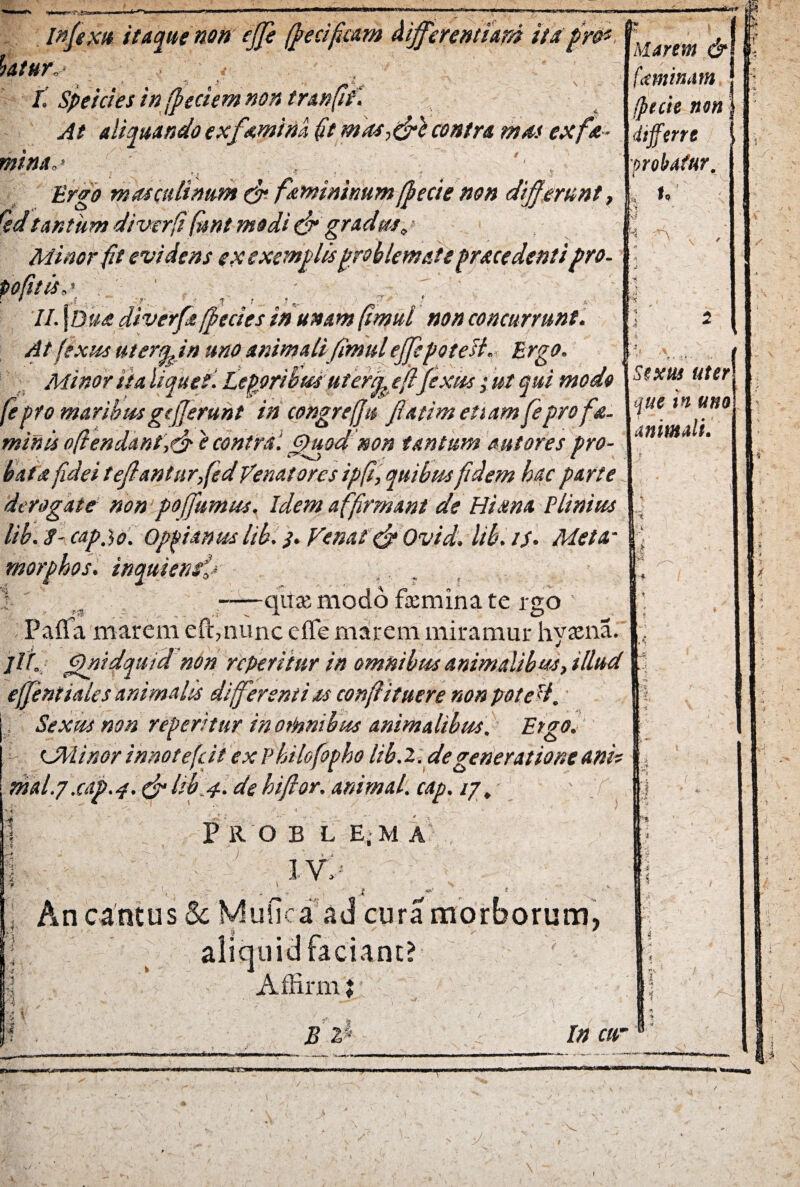 In sexu itaque non esse specificam differentiam ita pro⸗
batur.
I. Speicies in speciem non transit.
At aliquando ex fæmina fit mas, & è contra mas ex fæ-
mina.
Ergo masculinum & fæmininum specie non differunt,
sed tantum diversi sunt modi & gradus.
Minor fit evidens ex exemplis problemate præcedenti pro-
positis.
II. Duæ diversæ species in unam simul non concurrunt.
At sexus uterq; in uno animali simul esse potest. Ergo.
Minor ita liquet. Leporibus uterq; est sexus; ut qui modo
se pro maribus gesserunt in congressu statim etiam se pro fæ-
minis ostendant, & è contra. Quod non tantum autores pro-
batæ fidei testantur, sed Venatores ipsi, quibus fidem hac parte
derogate non possumus. Idem affirmant de Hiæna Plinius
lib. 8. cap. 30. Oppianus lib. 3. Venat & Ovid. lib. 15. Meta-
morphos. inquiens:
——quæ modò fæmina te rgo
Passa marem est, nunc esse marem miramur hyænā.
III. Qnidquid non reperitur in omnibus animalibus, illud
essentiales animalis differentias constituere non potest.
Sexus non reperitur in omnibus animalibus. Ergo.
Minor innotescit ex Philosopho lib. 2. de generatione ani-
mal. 7. cap. 4. & lib. 4. de histor. animal. cap. 17.
PROBLEMA
IV.
An cantus & Musica ad curā morborum,
aliquid faciant?
Affirm:
B 2
In cur-
Marem &
fæminam
specie non
differre
probatur.
1.
2
Sexus uter
que in uno
animali.